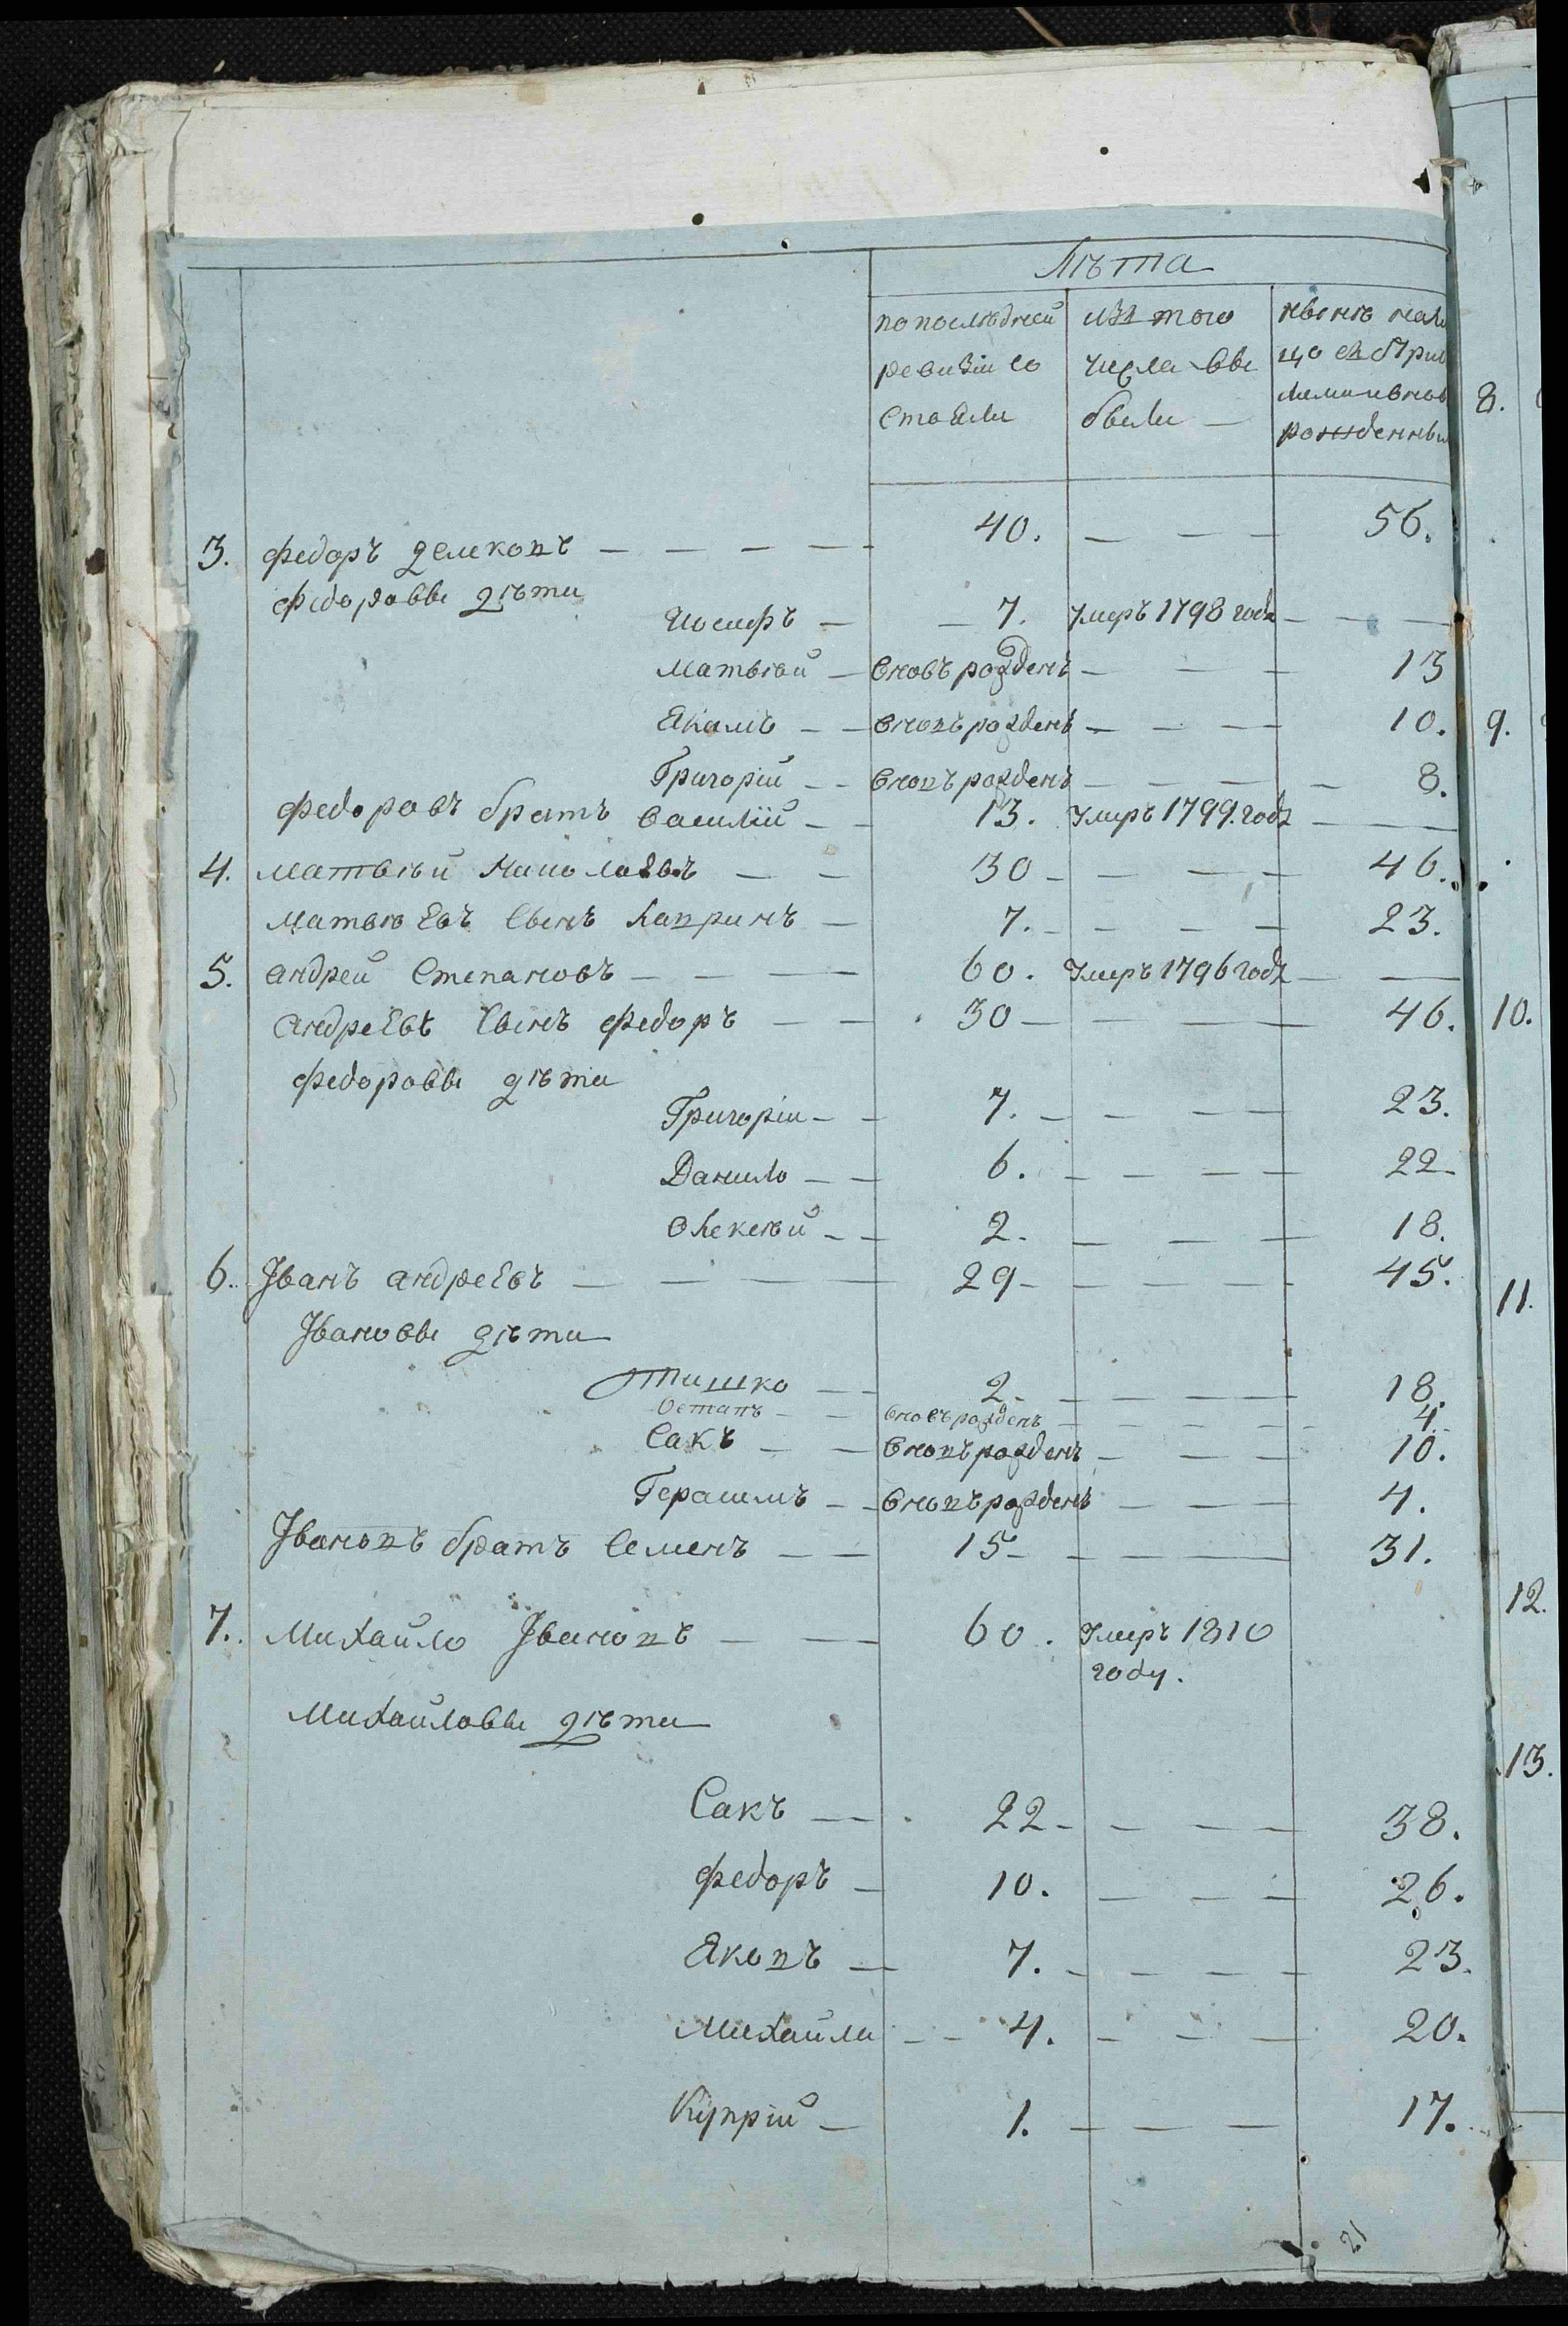 Лѣта
попослѣдней ревизіи со стояли
изъ того числа вы были —
рожденны
3. Федоръ — — — — 40. — — — 56.
Федоровы дѣти
Иосифъ — — 7. Умеръ 1798 года — — —
Матвѣй — вновъ рожденъ — — — 13
Якимъ — — вновъ рожденъ — — — 10.
Григорій — — вновъ рожденъ — — — — 8.
Федоровъ братъ Василій — — 13. Умеръ 1799. года — — —
4. Матвѣй — — 30 — — — — 46.
Матвѣевъ сынъ — 7. — — — — 23.
5. Андрей Степановъ — — — — 60. Умеръ 1796 года — —
Андреевъ сынъ Федоръ — — 30 — — — — 46.
Федоровы дѣти
Григоріи — — 7. — — — — 23.
Данило — — 6. — — — — 22
Олексѣй — — 2. — — — 18.
6. Іванъ Андреевъ — — — — 29 — — — — 45.
Івановы дѣти
Тишко — — 2. — — — — 18.
Остапъ — — вновъ рожденъ — — — — — 4.
Сакъ — — вновъ рожденъ — — — 10.
Герасимъ — — вновъ рожденъ — — — 4.
Івановъ братъ Семенъ — — 15 — — — — 31.
7. Михайло Івановъ — — — 60. Умеръ 1810
году.
Михайловы дѣти
Сакъ — 22 — — — — 38.
Федоръ — 10. — — — 26.
Яковъ — 7. — — — — 23.
Михаили — — 4. — — — 20.
Купрій — 1. — — — 17.
21
8.
9.
10.
11.
12.
13.